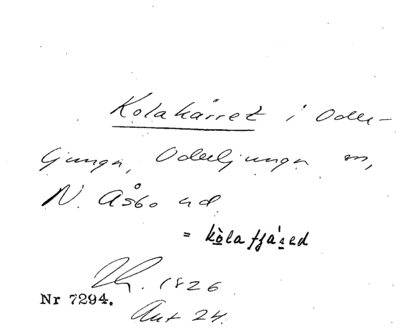 Kolakärret i Oder-
ljunga, Oderljunga sn,
N. Åsbo hd
= kòlafjásed
1826
Nr 7294.
Aut 24.